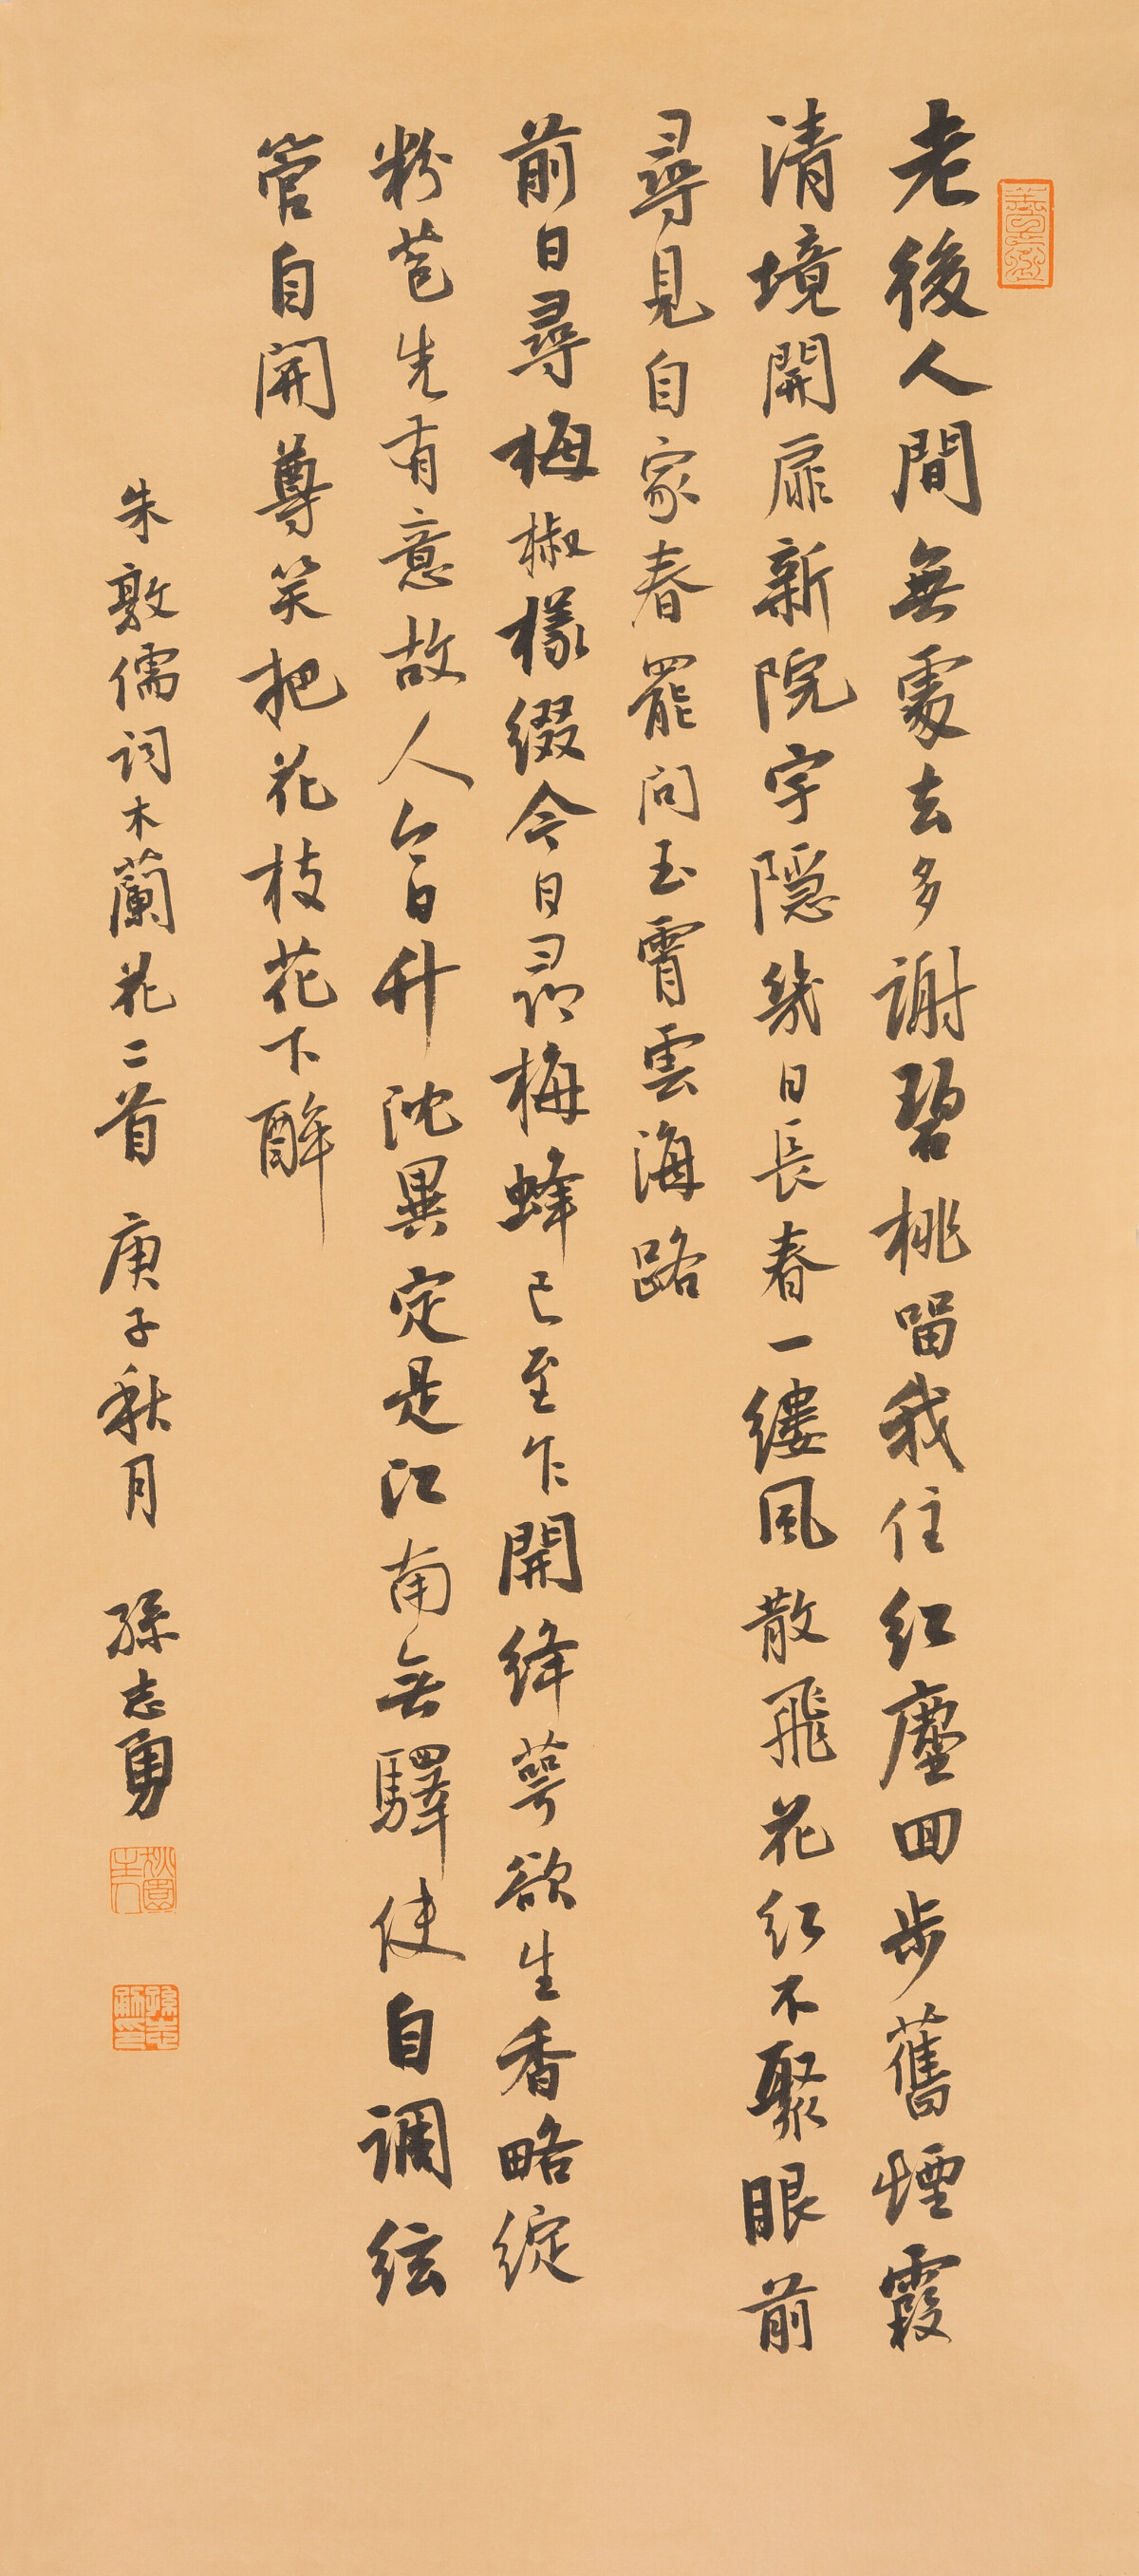 老後人間無處去多謝碧桃留我住紅塵回步舊煙霞
清境開扉新院宇隱几日長春一縷風散飛花紅不聚眼前
尋見自家春罷問玉霄雲海路
前日尋梅椒樣綴今日尋梅蜂已至乍開絳萼欲生香略綻
粉苞先有意故人今日升沈異定是江南無驛使自調絃
管自開尊笑把花枝花下醉
朱敦儒詞木蘭花二首 庚子秋月 孫志勇